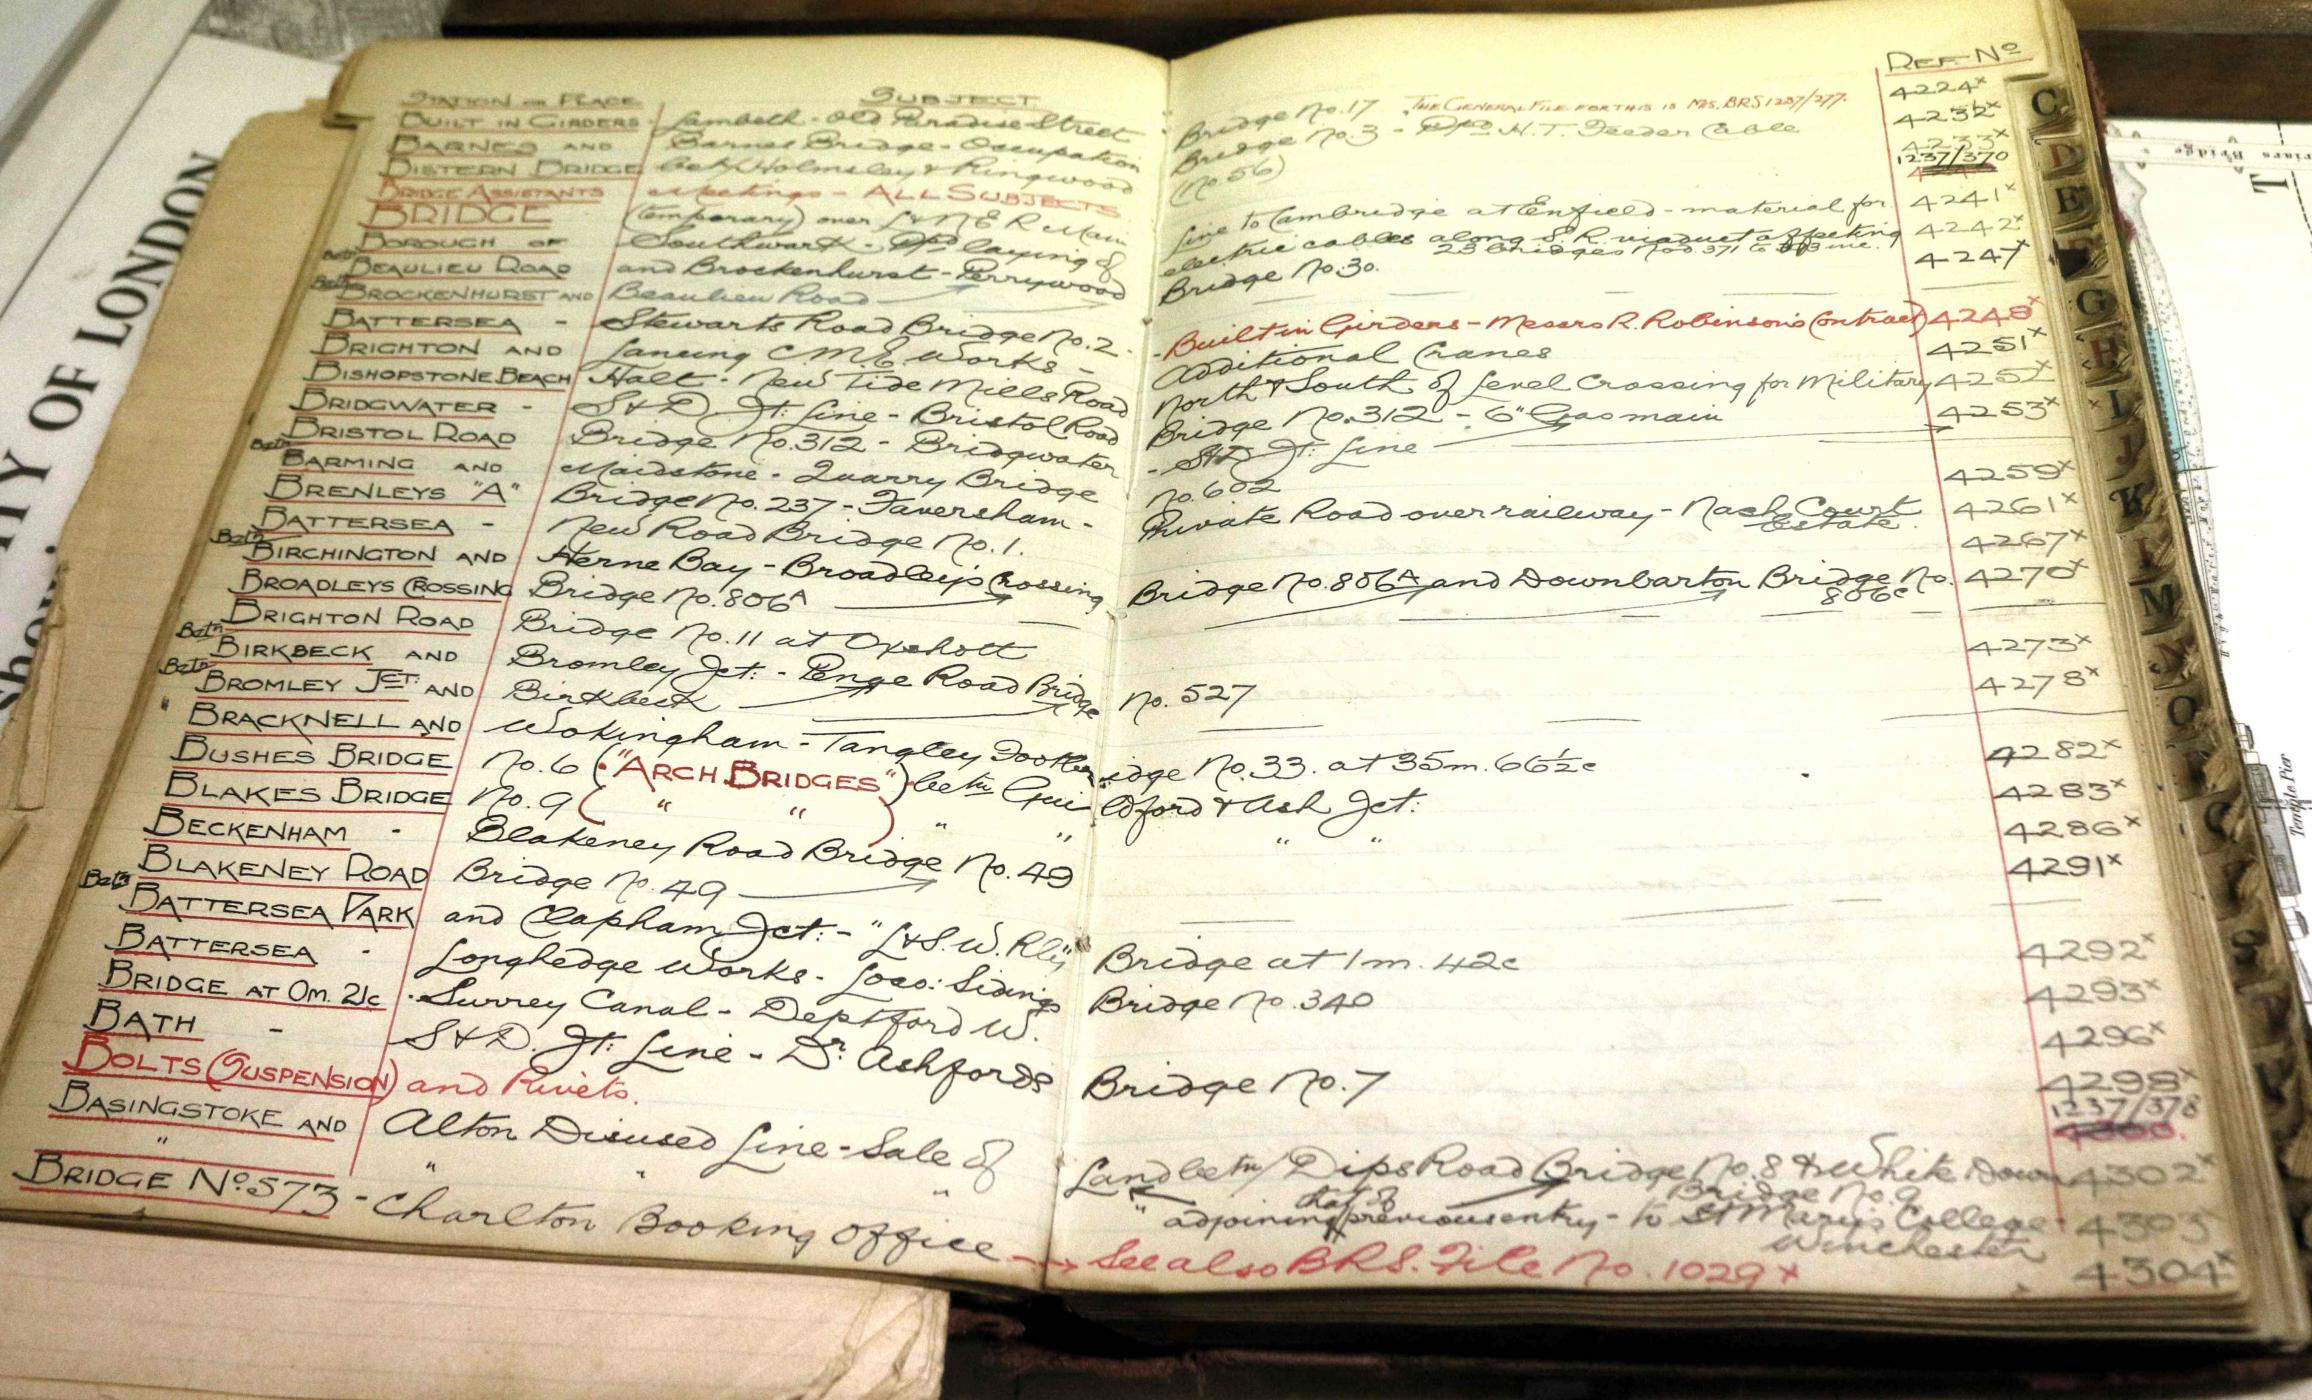 STATION or PLACE SUBJECT REF. No
BUILT IN GIRDERS - Lambeth - Old Paradise Street Bridge No. 17 THE GENERAL FILE FOR THIS IS M/S. BRS 1237/277. 4224x
BARNES AND Barnes Bridge - Occupation Bridge No. 3 - H.T. Feeder Cable 4232x
BISTERN BRIDGE betn Holmsley & Ringwood (No. 56) 4233x
BRIDGE ASSISTANTS Meetings - ALL SUBJECTS 1237/370
BRIDGE (temporary) over L & N E R Main Line to Cambridge at Enfield - material for 4241x
BOROUGH OF Southwark - Ppd laying of electric cables along S.R. viaduct affecting 23 bridges Nos. 371 to 393 inc. 4242x
Betn BEAULIEU ROAD and Brockenhurst - Perrywood Bridge No. 30. 4247x
Betn BROCKENHURST AND Beaulieu Road
BATTERSEA - Stewarts Road Bridge No. 2. - Built in Girders - Messrs R. Robinson's Contract) 4248x
BRIGHTON AND Lancing C.M.E. Works - Additional Cranes 4251x
BISHOPSTONE BEACH Halt - New Tide Mills Road North & South of Level Crossing for Military 4252x
BRIDGWATER - S & D. Jt: Line - Bristol Road Bridge No. 312 - 6" Gas main 4253x
BRISTOL ROAD Bridge No. 312 - Bridgwater - S & D Jt: Line
Betn BARMING AND Maidstone - Quarry Bridge No. 602 4259x
BRENLEYS "A" Bridge No. 237 - Faversham - Private Road over railway - Nash Court Estate. 4261x
BATTERSEA - New Road Bridge No. 1. 4267x
Betn BIRCHINGTON AND Herne Bay - Broadley's Crossing Bridge No. 806A and Downbarton Bridge No. 806c 4270x
BROADLEYS CROSSING Bridge No. 806A
BRIGHTON ROAD Bridge No. 11 at Oxshott 4273x
Betn BIRKBECK AND Bromley Jct: - Penge Road Bridge No. 527 4278x
Betn BROMLEY JCT: AND Birkbeck
BRACKNELL AND Wokingham - Tangley Footbridge No. 33. at 35m. 66½c 4282x
BUSHES BRIDGE No. 6 ("ARCH BRIDGES") betn Guildford & Ash Jct: 4283x
BLAKES BRIDGE No. 9 ( " " ) " " " " 4286x
BECKENHAM - Blakeney Road Bridge No. 49 4291x
BLAKENEY ROAD Bridge No. 49
Betn BATTERSEA PARK and Clapham Jct: - "L & S. W. Rly" Bridge at 1m. 42c 4292x
BATTERSEA - Longhedge Works - Loco: Sidings Bridge No. 340 4293x
BRIDGE AT 0m. 21c - Surrey Canal - Deptford W. 4296x
BATH - S & D. Jt: Line - Dr. Ashfords Bridge No. 7 4298x
BOLTS (SUSPENSION) and Rivets. 1237/378 4300.
BASINGSTOKE AND Alton Disused Line - Sale of Land betn/ Dips Road Bridge No. 8 & White Down Bridge No. 9 4302x
" " " " " adjoining that of previous entry - to St Mary's College Winchester 4303x
BRIDGE No. 573 - Charlton Booking Office → See also BRS. File No. 1029x 4304x
C
D
E
F
G
H
I
J
K
L
M
N
O
CITY OF LONDON
Temple Pier
T